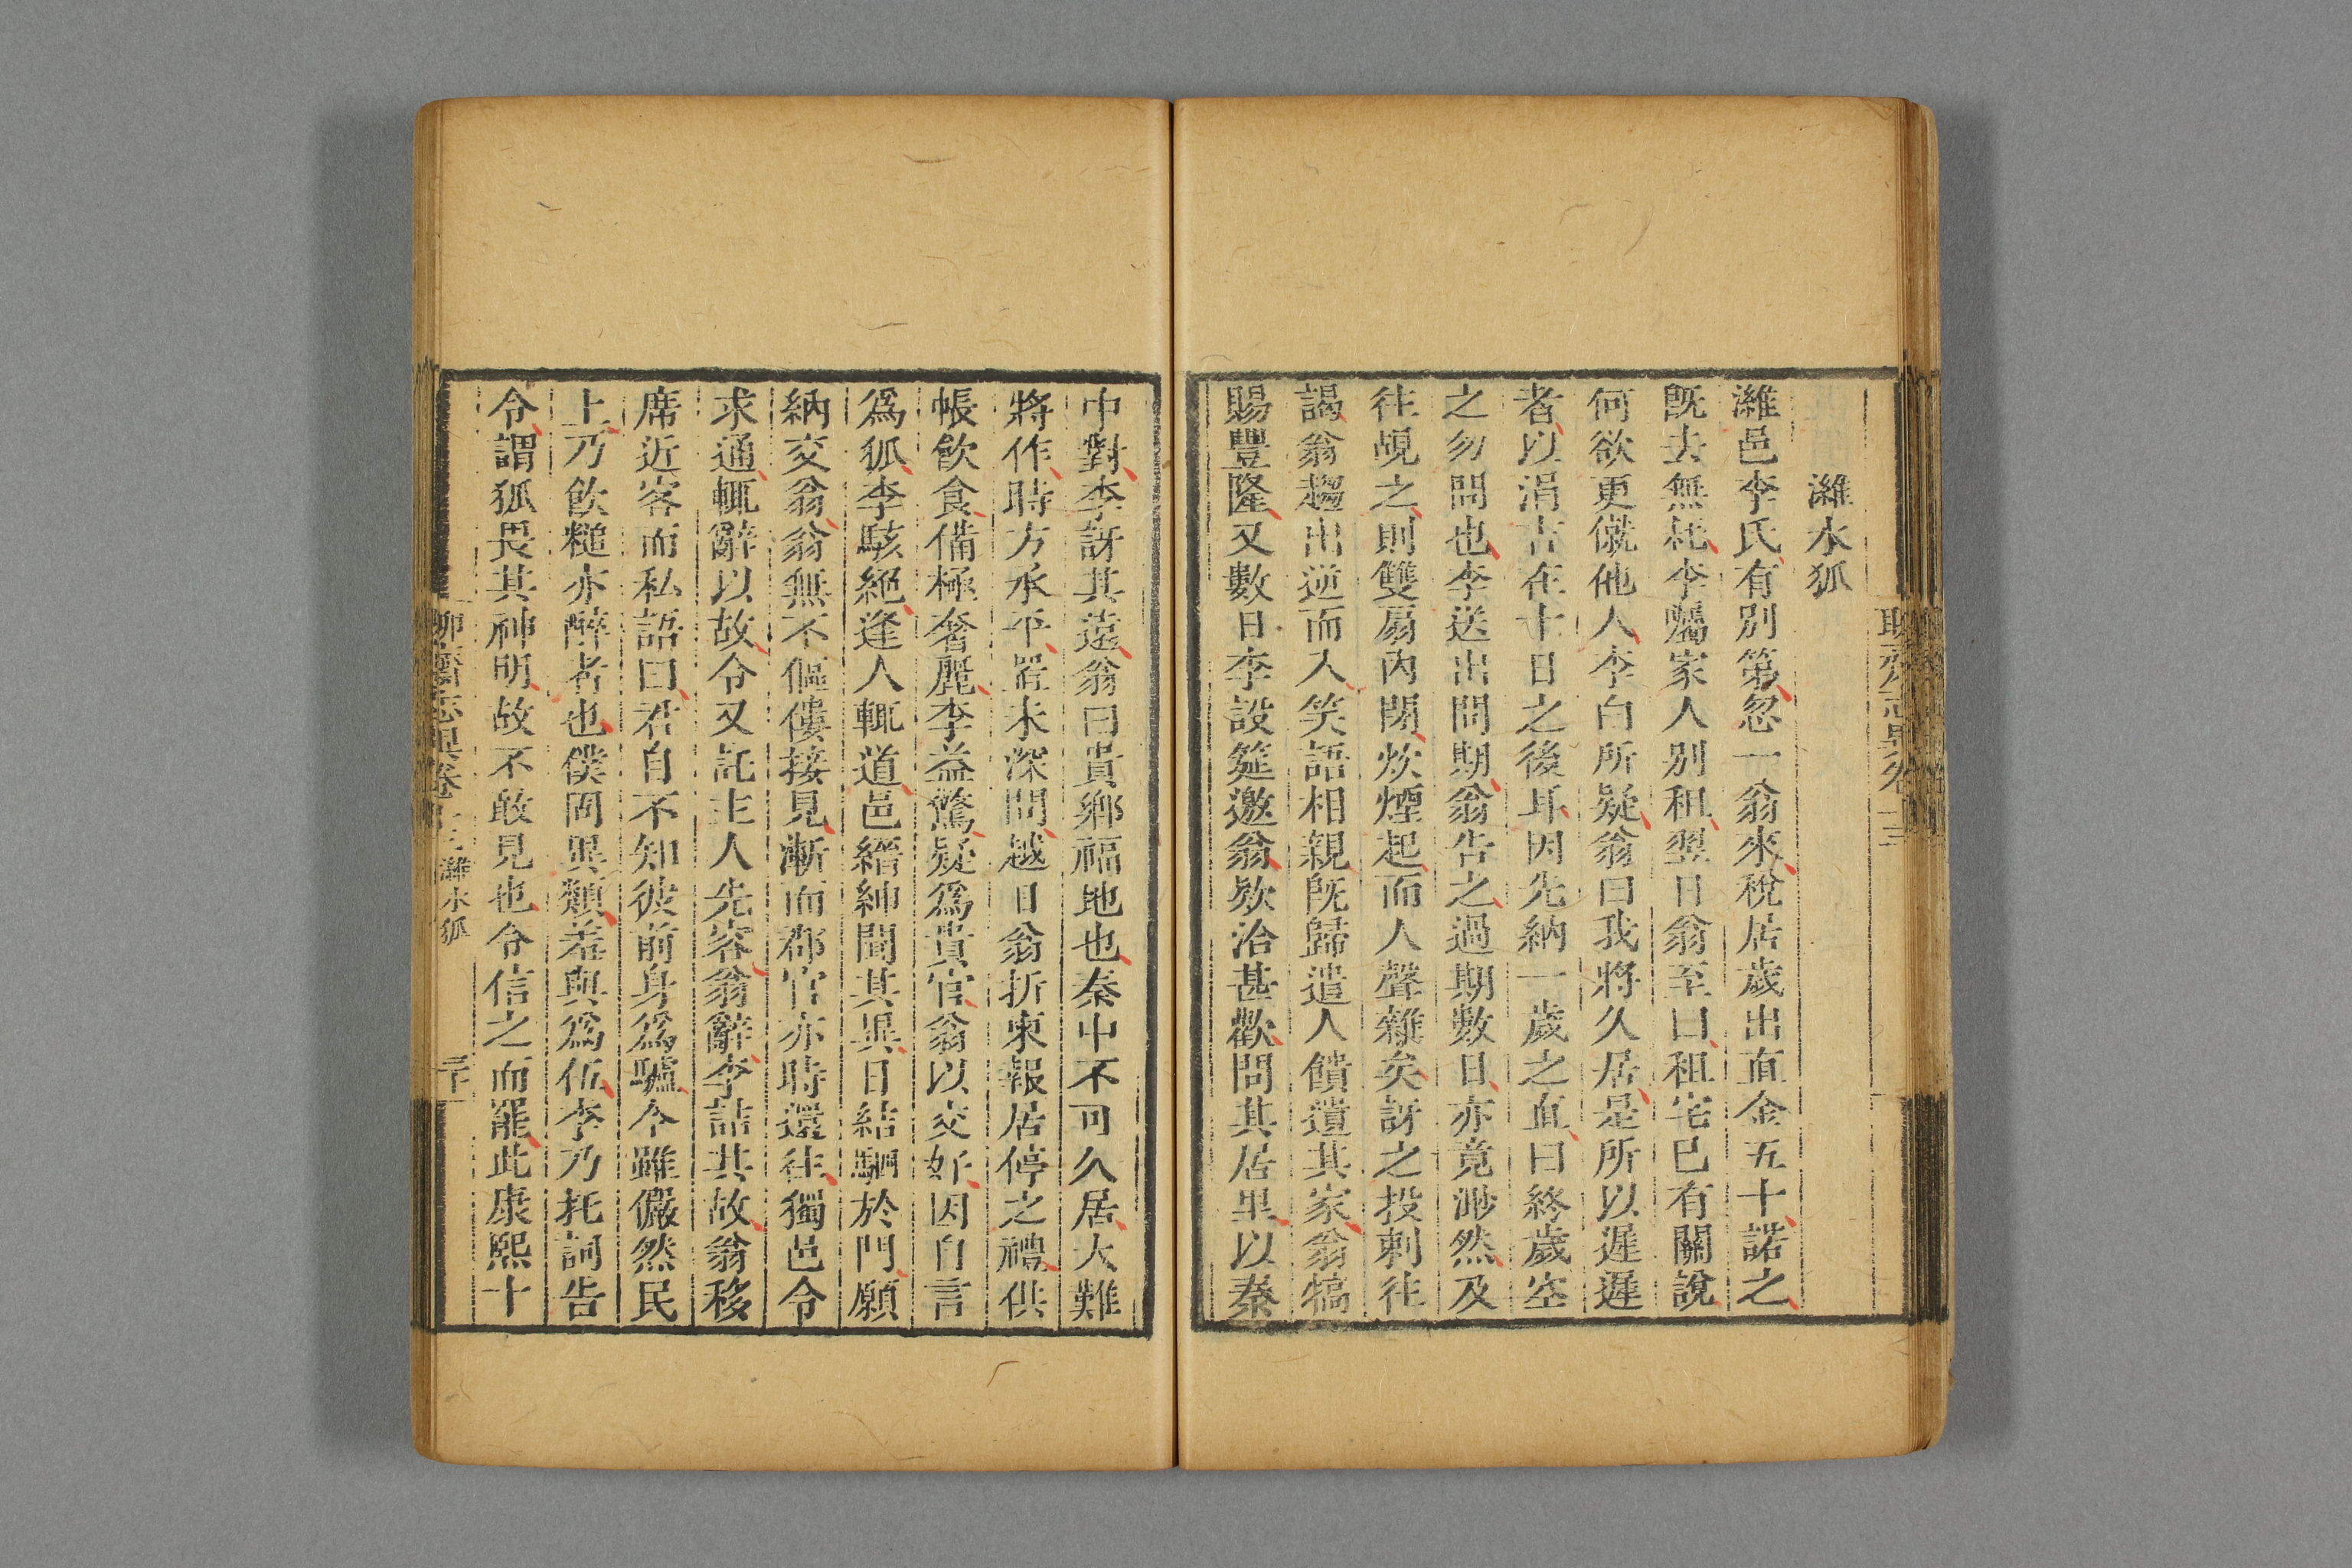 濰水狐
濰邑李氏有別第忽一翁來稅居歲出直金五十諾之
旣去無耗李囑家人別租翌日翁至曰租宅已有關說
何欲更僦他人李白所疑翁曰我將久居是所以遲遲
者以涓吉在十日之後耳因先納一歲之直曰終歲空
之勿問也李送出問期翁告之過期數日亦竟渺然及
往覘之則雙扇內閉炊煙起而人聲雜矣訝之投刺往
謁翁趨出逆而入笑語相親旣歸遣人饋遺其家翁犒
賜豐隆又數日李設筵邀翁款洽甚歡問其居里以秦
中對李訝其遠翁曰貴鄉福地也秦中不可久居大難
將作時方承平置未深問越日翁折柬報居停之禮供
帳飲食備極奢麗李益驚疑爲貴官翁以交好因自言
爲狐李駭絕逢人輒道邑縉紳聞其異日結駟於門願
納交翁翁無不傴僂接見漸而郡官亦時還往獨邑令
求通輒辭以故令又託主人先容翁辭李詰其故翁移
席近客而私語曰君自不知彼前身爲驢今雖儼然民
上乃飲糙亦醉者也僕固異類羞與爲伍李乃托詞告
令謂狐畏其神明故不敢見也令信之而罷此康熙十
聊齋志異卷十三 濰水狐 二十